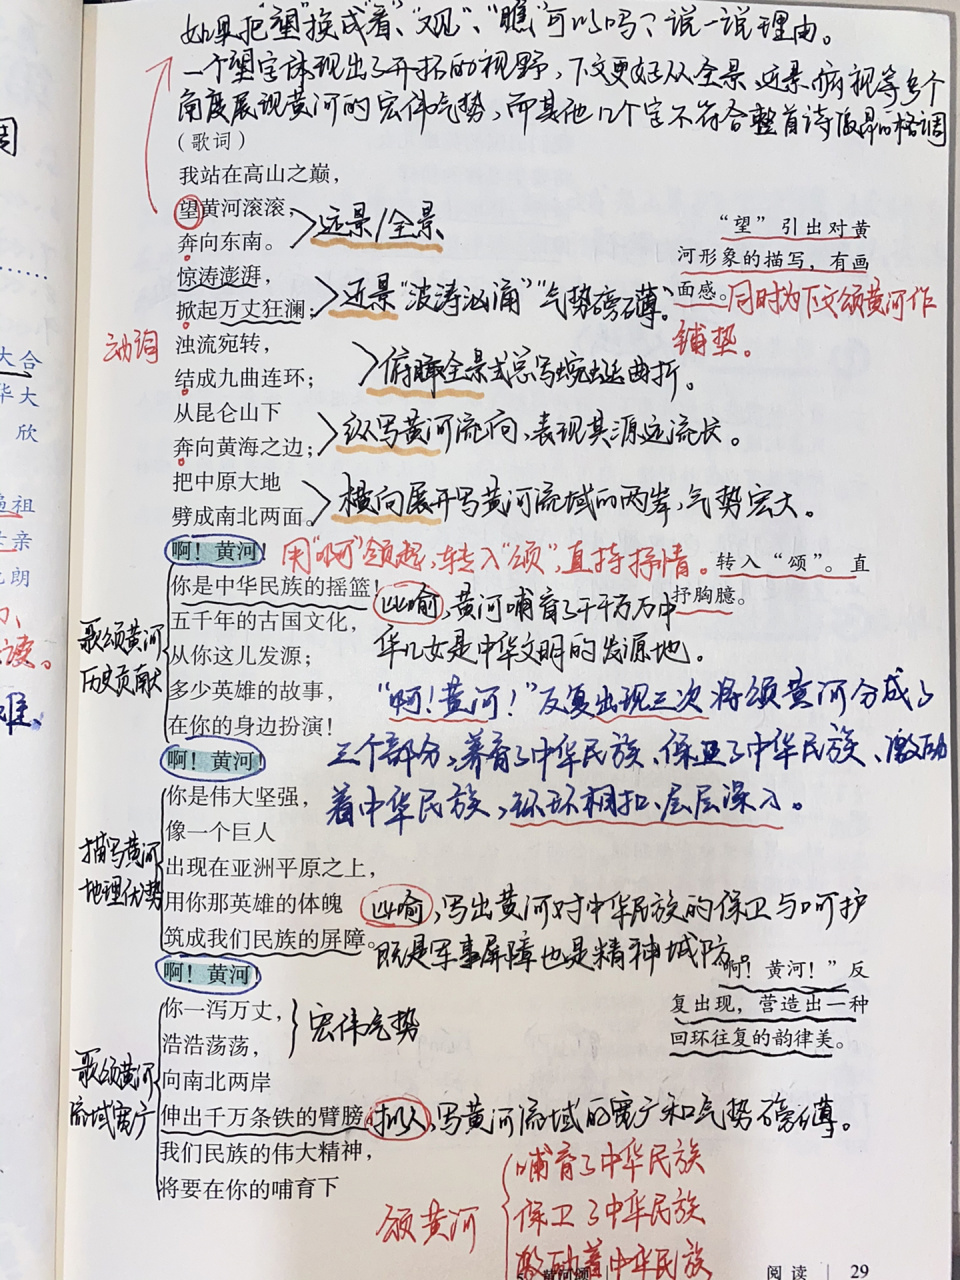 如果把“望”换成“看”、“观”、“瞧”可以吗？说一说理由。
一个望字体现出了开拓的视野，下文更好从全景、近景、俯视等多个
角度展现黄河的宏伟气势，而其他几个字不符合整首诗的格调
（歌词）
我站在高山之巅，
望黄河滚滚，
奔向东南。
远景/全景
惊涛澎湃，
掀起万丈狂澜；
近景“波涛汹涌”气势磅礴。
“望”引出对黄
河形象的描写，有画
面感。同时为下文颂黄河作
铺垫。
动词
浊流宛转，
结成九曲连环；
俯瞰全景式总写蜿蜒曲折。
从昆仑山下
奔向黄海之边；
纵写黄河流向，表现其源远流长。
把中原大地
劈成南北两面。
横向展开写黄河流域的两岸，气势宏大。
啊！黄河！
用“啊”领起，转入“颂”，直接抒情。
转入“颂”。直
抒胸臆。
你是中华民族的摇篮！
比喻，黄河哺育了千千万万中
华儿女是中华文明的发源地。
五千年的古国文化，
从你这儿发源；
多少英雄的故事，
在你的身边扮演！
歌颂黄河
历史贡献
“啊！黄河！”反复出现三次将颂黄河分成了
三个部分，养育了中华民族、保卫了中华民族、激励
着中华民族，环环相扣、层层深入。
啊！黄河！
你是伟大坚强，
像一个巨人
出现在亚洲平原之上，
用你那英雄的体魄
筑成我们民族的屏障。
描写黄河
地理优势
比喻，写出黄河对中华民族的保卫与呵护
既是军事屏障也是精神城防。
“啊！黄河！”反
复出现，营造出一种
回环往复的韵律美。
啊！黄河！
你一泻万丈，
浩浩荡荡，
宏伟气势
向南北两岸
伸出千万条铁的臂膀。
拟人，写黄河流域的宽广和气势磅礴。
歌颂黄河
流域宽广
我们民族的伟大精神，
将要在你的哺育下
颂黄河
哺育了中华民族
保卫了中华民族
激励着中华民族
黄河颂
阅读 29
大合
华大
欣
祖
亲
朗
读。
难、